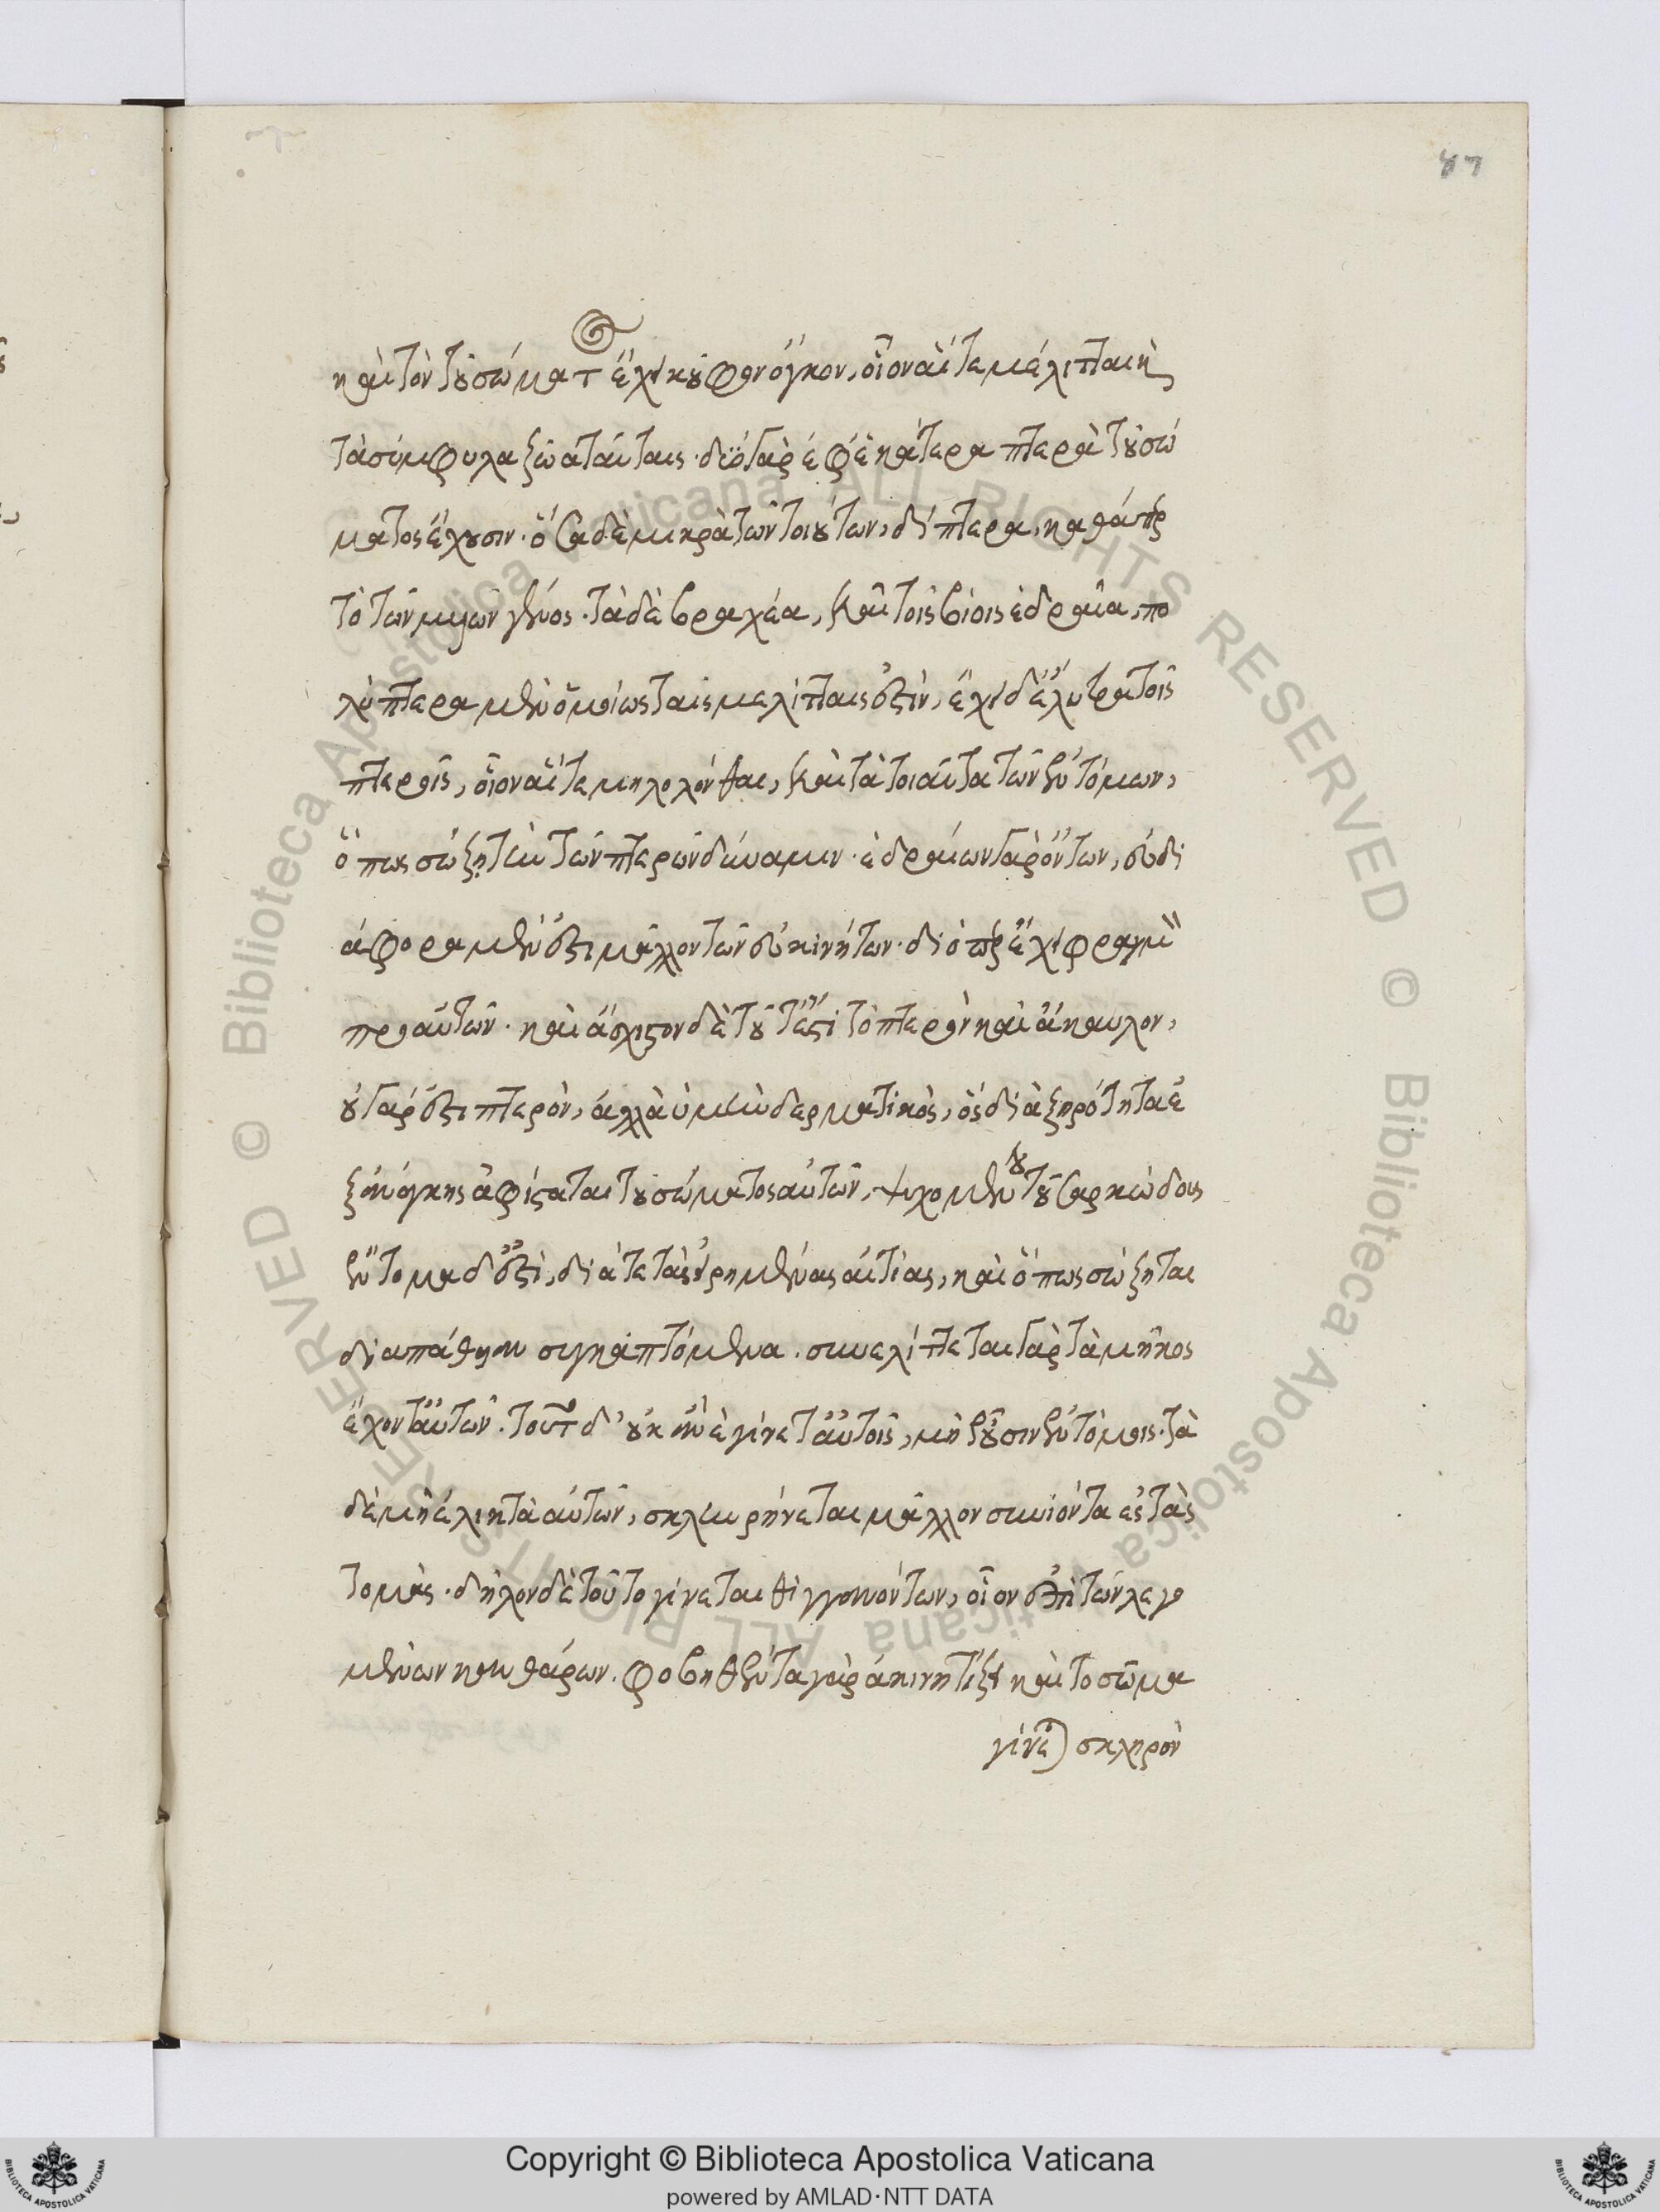 87
καὶ τὸν τοῦ σώματος ἔχει κοῦφον ὄγκον, οἷον αἵ τε μέλιτται κὶ
τὰ σύμφυλα ζῶα ταύταις· δύο γὰρ ἐφ' ἑκάτερα πτερὰ τοῦ σώ
ματος ἔχουσιν· ὅσα δὲ μικρὰ τῶν τοιούτων, δίπτερα, καθάπερ
τὸ τῶν μυιῶν γένος· τὰ δὲ βραχέα, καὶ τοῖς βίοις ἑδραῖα, πο
λύπτερα μὲν ὁμοίως ταῖς μελίτταις ἐστὶν, ἔχει δ' ἔλυτρα τοῖς
πτεροῖς, οἷον αἵ τε μηλολόνθαι, καὶ τὰ τοιαῦτα τῶν ἐντόμων,
ὅπως σώζῃ τὴν τῶν πτερῶν δύναμιν· ἑδραίων γὰρ ὄντων, εὐδι
άφορα μέν ἐστι μᾶλλον τῶν εὐκινήτων· διόπερ ἔχει φραγμὸν
πρὸ αὐτῶν· καὶ ἄσχιστον δὲ τούτ' ἐστὶ τὸ πτερὸν καὶ ἄκαυλον,
οὐ γάρ ἐστι πτερὸν, ἀλλὰ ὑμὴν δερματικὸς, ὃς διὰ ξηρότητα ἐ
ξ ἀνάγκης ἀφίσταται τοῦ σώματος αὐτῶν, ψυχομένου τοῦ σαρκώδους
ἔντομα δ' ἐστὶ, διά τε τὰς εἰρημένας αἰτίας, καὶ ὅπως σώζηται
δι' ἀπάθειαν συγκαπτόμενα. συνελίττεται γὰρ τὰ μῆκος
ἔχοντ' αὐτῶν. τοῦτο δ' οὐκ ἂν ἐγίνετ' αὐτοῖς, μὴ ἐοῦσιν ἐντόμοις· τὰ
δὲ μὴ ἑλικτὰ αὐτῶν, σκληρύνεται μᾶλλον συνιόντα εἰς τὰς
τομάς· δῆλον δὲ τοῦτο γίνεται θιγγανόντων, οἷον ἐπὶ τῶν λεγο
μένων κανθάρων. φοβηθέντα γὰρ ἀκινητίζει καὶ τὸ σῶμα
γίνεται σκληρὸν
Copyright © Biblioteca Apostolica Vaticana
powered by AMLAD·NTT DATA